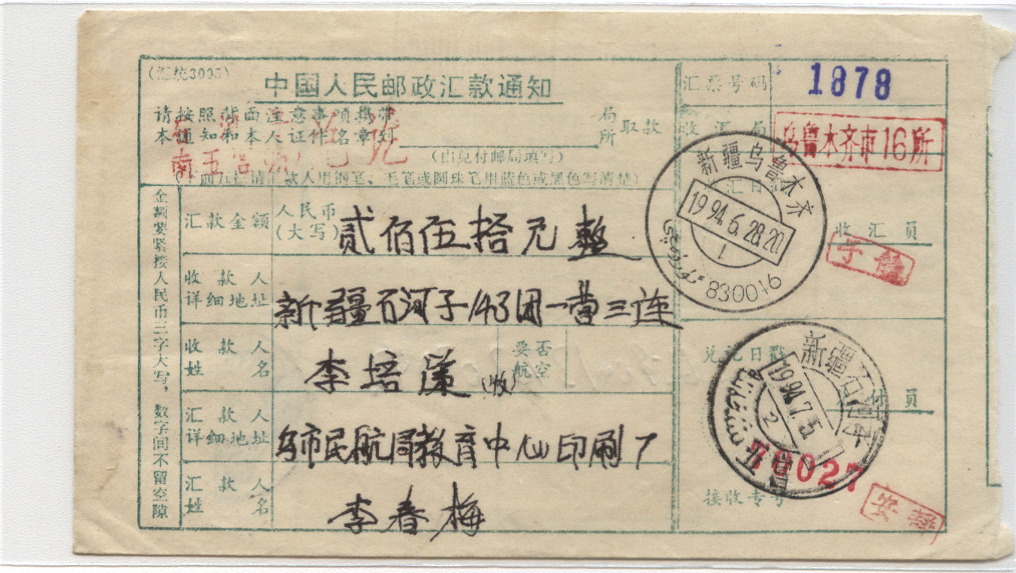 (汇统3005)
中国人民邮政汇款通知
汇票号码
1878
请按照背面注意事项携带
本通知和本人证件名章到
局
所
取款
(由兑付邮局填写)
收汇局
乌鲁木齐市16所
新疆乌鲁木齐
1994.6.28.20
1
830016
收汇员
汇款人用钢笔、毛笔或圆珠笔用蓝色或黑色写清楚)
金额要紧接人民币三字大写,数字间不留空隙
汇款金额
人民币
(大写)
贰佰伍拾元整
收款人
详细地址
新疆石河子143团一营三连
收款人
姓名
李培
(收)
要否
航空
汇款人
详细地址
乌市民航局教育中心印刷厂
汇款人
姓名
李春梅
兑讫日戳
新疆石河子
1994.7.5
2
员
接收专号